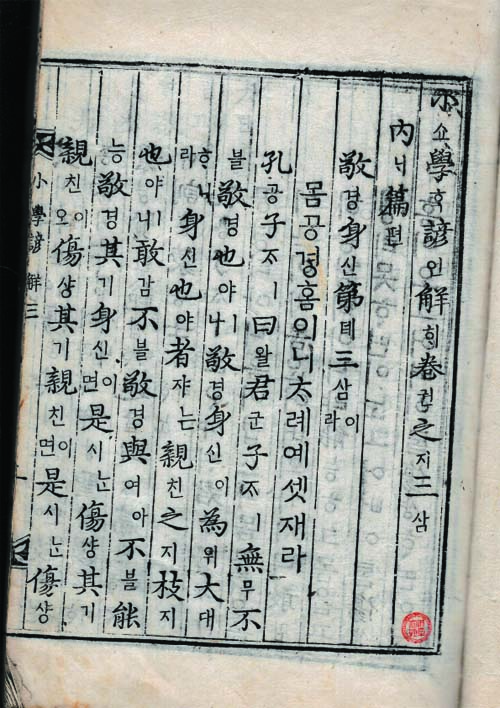 小쇼學ᄒᆞᆨ諺언解ᄒᆡ卷권之지三삼
內ᄂᆡ篇편
敬경身신第뎨三삼이라
몸공경홈이니ᄎᆞ례예셋재라
孔공子ᄌᆞㅣ曰왈君군子ᄌᆞㅣ無무不
블敬경也야ㅣ나敬경身신이為위大대
ᄒᆞ니라身신也야者쟈ᄂᆞᆫ親친之지枝지
也야ㅣ니敢감不블敬경與여아不블能
능敬경其기身신이면是시ᄂᆞᆫ傷샹其기
親친이오傷샹其기親친이면是시ᄂᆞᆫ傷샹
小學諺解 三